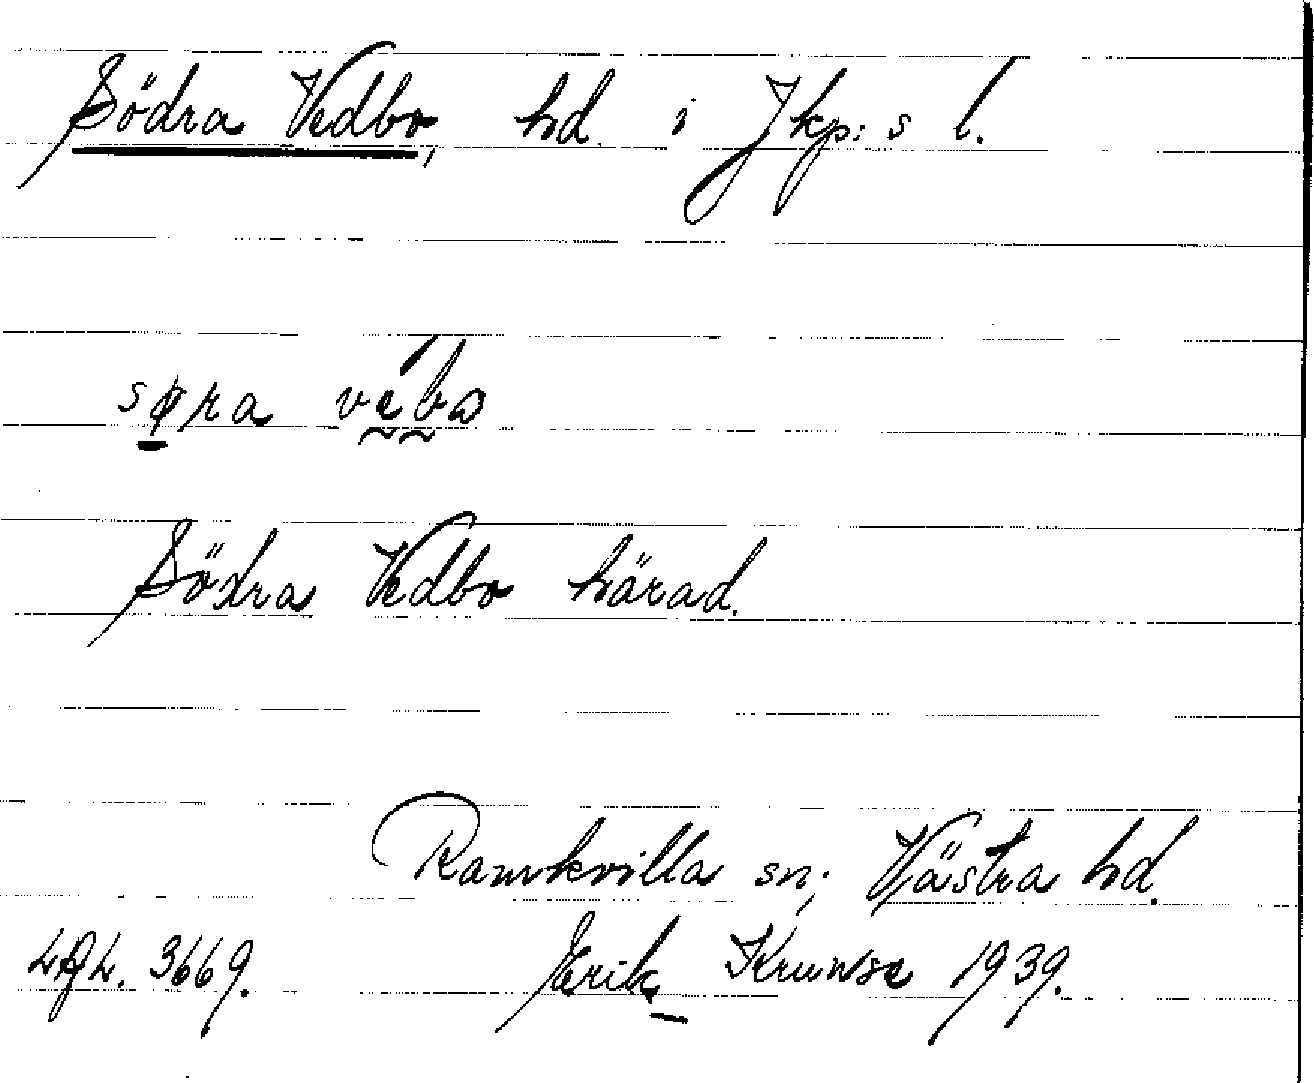 Södra Vedbo, hd. i Jkp:s l.
søra vébo
Södra Vedbo härad.
Ramkvilla sn; Västra hd.
3669. Erik Kruuse 1939.